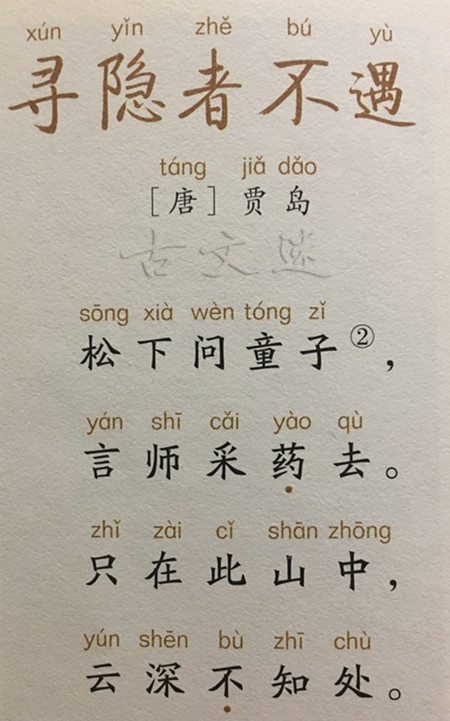 xún yǐn zhě bú yù
寻隐者不遇
táng jiǎ dǎo
[唐]贾岛
古文迷
sōng xià wèn tóng zǐ
松下问童子②，
yán shī cǎi yào qù
言师采药去。
zhǐ zài cǐ shān zhōng
只在此山中，
yún shēn bù zhī chù
云深不知处。